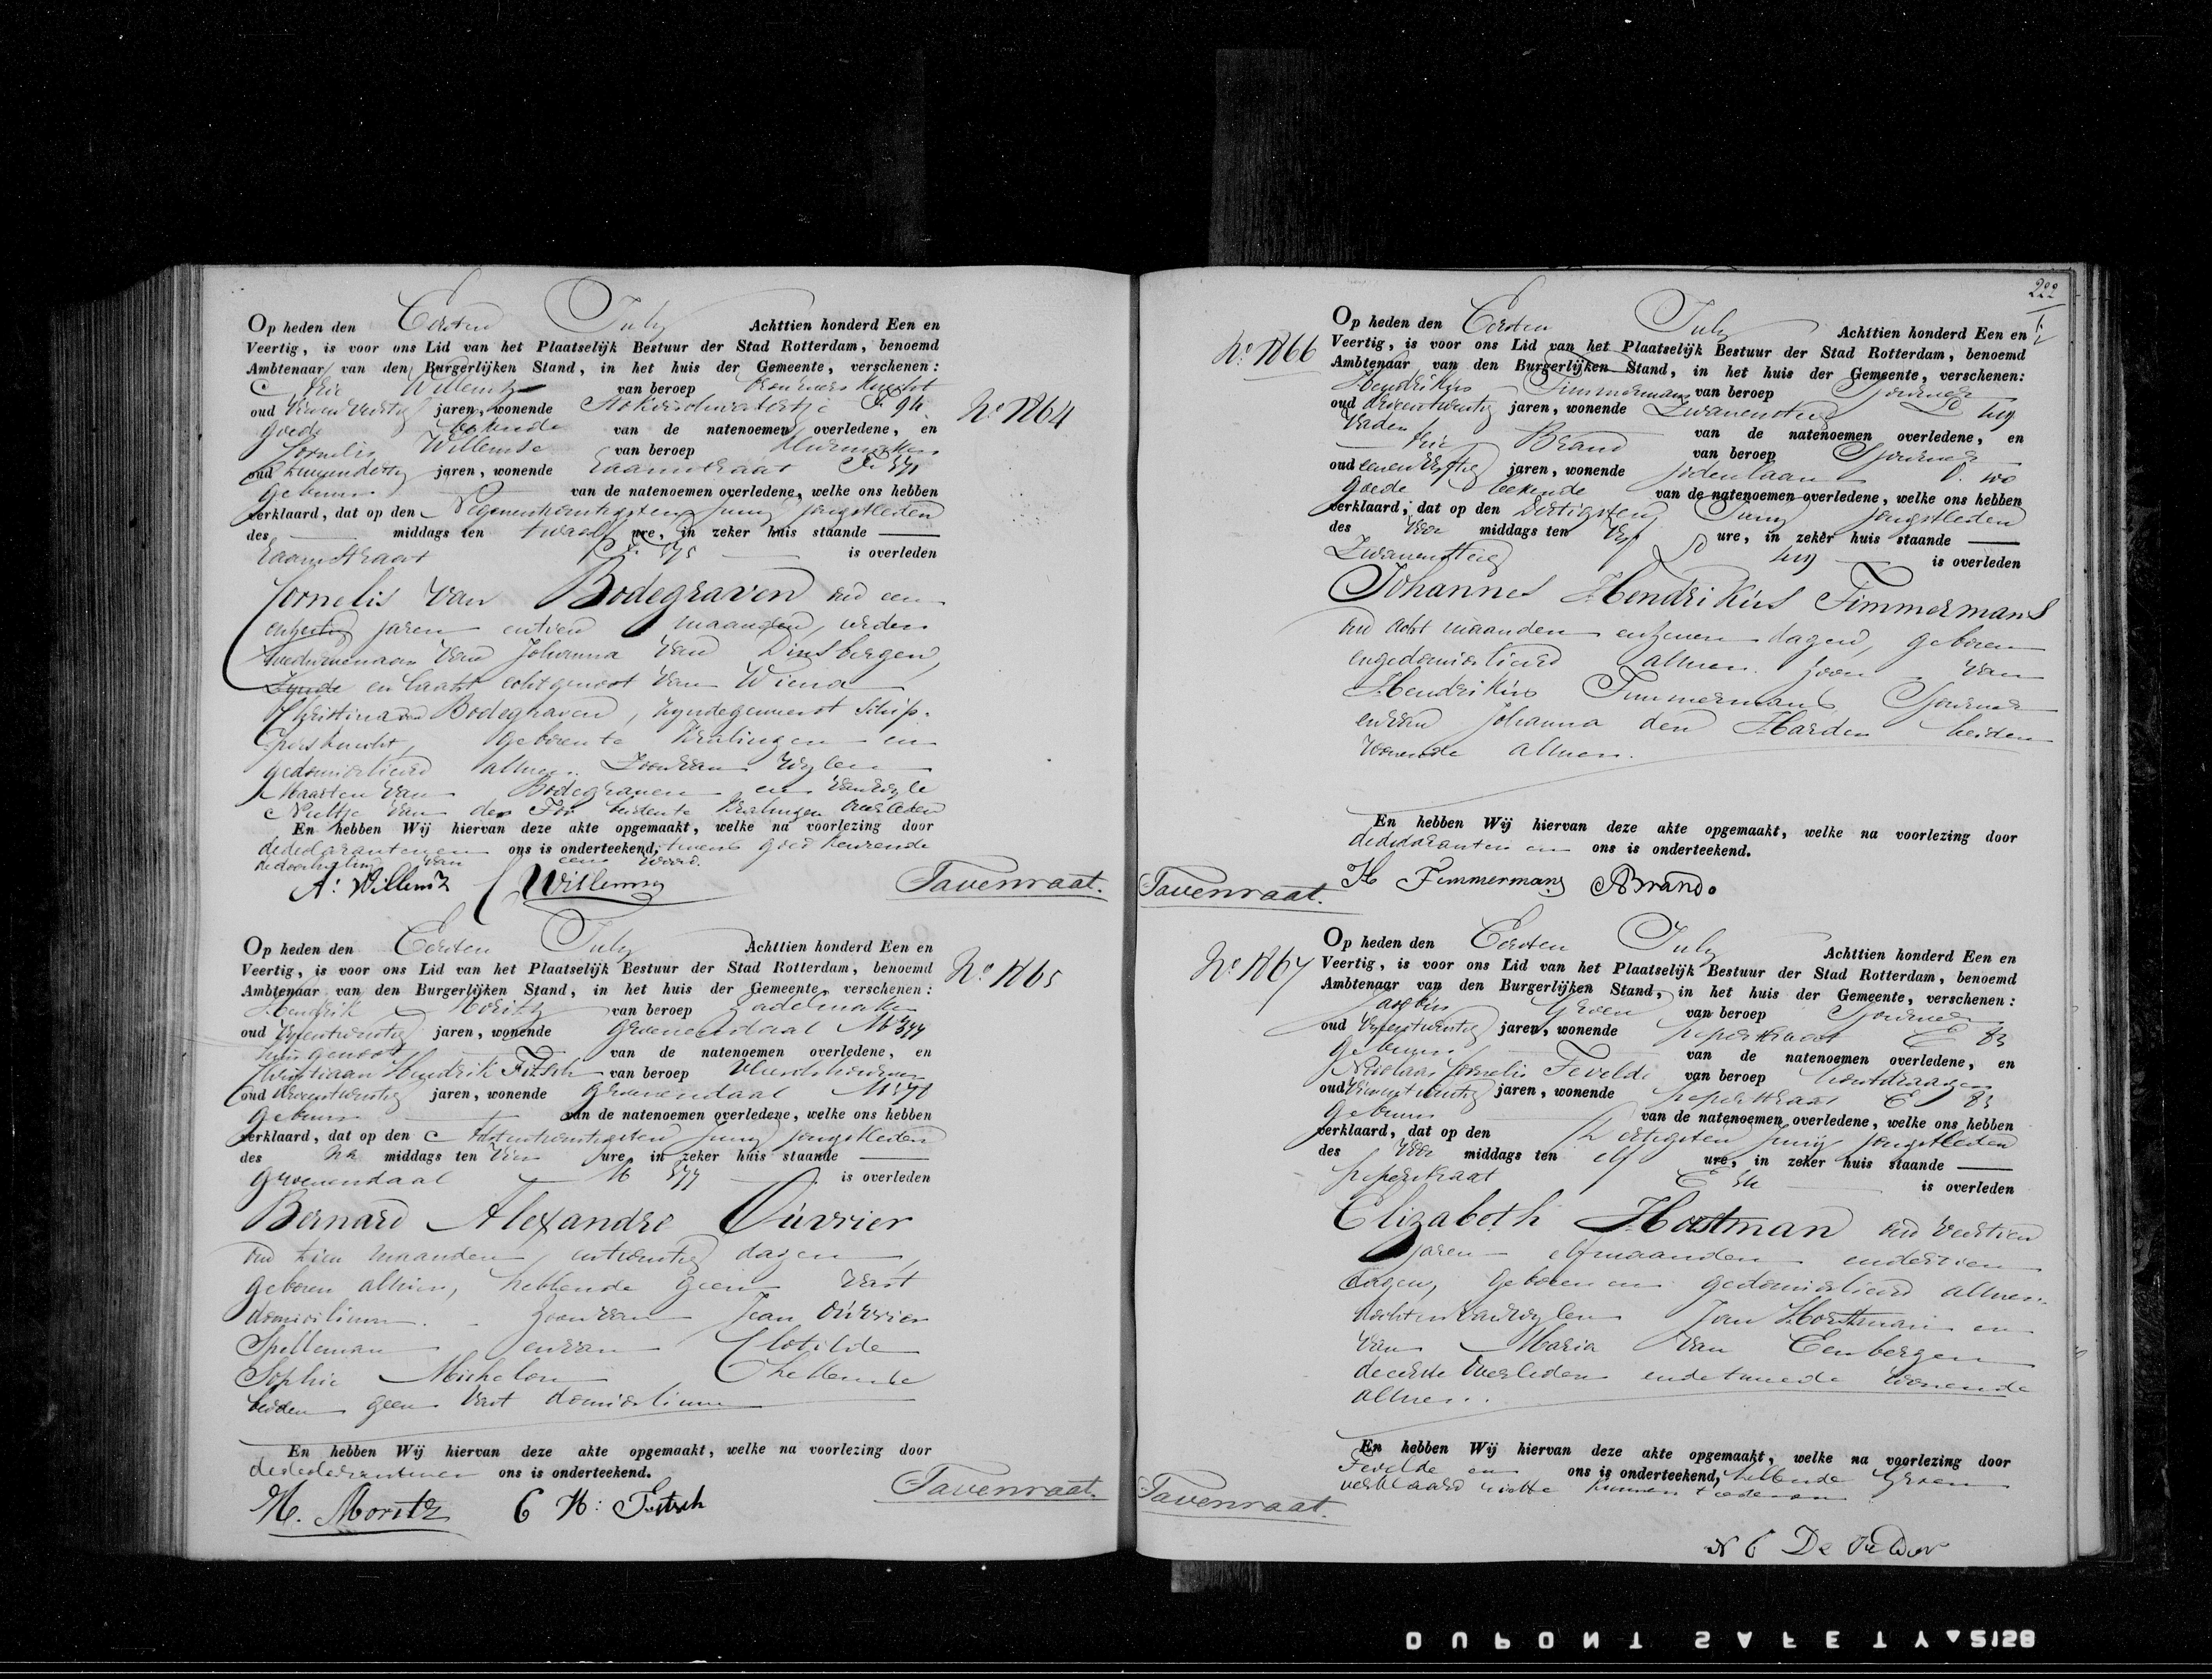 Op heden den Eersten July Achttien honderd Een en
Veertig, is voor ons Lid van het Plaatselijk Bestuur der Stad Rotterdam, benoemd
Ambtenaar van den Burgerlijken Stand, in het huis der Gemeente, verschenen:
Arie Willemsz van beroep knecht
oud jaren, wonende
goede bekende van de natenoemen overledene, en
Cornelis Willemse van beroep
oud jaren, wonende Raamstraat
gebuur van de natenoemen overledene, welke ons hebben
verklaard, dat op den Negenentwintigsten Juny jongstleden
des middags ten twaalf ure, in zeker huis staande
Raamstraat is overleden
Cornelis van Bodegraven oud een
jaren en maanden, eerder
weduwenaar van Johanna van Dinsbergen,
en laatst echtgenoot van
Christina van Bodegraven, zynde geweest Schip-
perskneckt, geboren te Kralingen en
gedomicilieerd alhier. Zoon van wylen
Maarten van Bodegraven en van wyle
Neeltje van der beide te Kralingen overleden
En hebben Wij hiervan deze akte opgemaakt, welke na voorlezing door
de declaranten en ons is onderteekend, goedkeurende
de doorhaling van een woord.
No. 1864
A: Willemsz C Willemse
Tavenraat.
Op heden den Eersten July Achttien honderd Een en
Veertig, is voor ons Lid van het Plaatselijk Bestuur der Stad Rotterdam, benoemd
Ambtenaar van den Burgerlijken Stand, in het huis der Gemeente, verschenen:
Hendrik Moritz van beroep zadelmaker
oud vyfentwintig jaren, wonende Groenendaal M 377
huisgenoot van de natenoemen overledene, en
Christiaan Hendrik Fitsch van beroep
oud drieentwintig jaren, wonende Groenendaal
gebuur van de natenoemen overledene, welke ons hebben
verklaard, dat op den Achtentwintigsten Juny jongstleden
des na middags ten vier ure, in zeker huis staande
Groenendaal M 377 is overleden
Bernard Alexandre Ouvrier
oud tien maanden, en twintig dagen,
geboren alhier, hebbende geen vast
domicilium. zoon van Jean Ouvrier
Spelleman en van Clotilde
Sophie Michelon hebbende
beiden geen vast domicilium
En hebben Wij hiervan deze akte opgemaakt, welke na voorlezing door
de declaranten en ons is onderteekend.
No. 1865
H. Moritz C H: Fitsch
Tavenraat.
222
Op heden den Eersten July Achttien honderd Een en
Veertig, is voor ons Lid van het Plaatselijk Bestuur der Stad Rotterdam, benoemd
Ambtenaar van den Burgerlijken Stand, in het huis der Gemeente, verschenen:
Hendrikus Timmermans van beroep Sjouwer
oud drieentwintig jaren, wonende Zwanensteeg
Vader van de natenoemen overledene, en
Arie Brand van beroep Sjouwer
oud eenenvyftig jaren, wonende Jodenlaan
goede bekende van de natenoemen overledene, welke ons hebben
verklaard, dat op den Dertigsten Juny jongstleden
des Voor middags ten vyf ure, in zeker huis staande
Zwanensteeg is overleden
Johannes Hendrikus Timmermans
oud acht maanden en zeven dagen, geboren
en gedomicilieerd alhier. zoon van
Hendrikus Timmermans Sjouwer
en van Johanna den Harder beiden
wonende alhier.
En hebben Wij hiervan deze akte opgemaakt, welke na voorlezing door
de declaranten en ons is onderteekend.
No. 1866
H Timmermans ABrand
Tavenraat.
Op heden den Eersten July Achttien honderd Een en
Veertig, is voor ons Lid van het Plaatselijk Bestuur der Stad Rotterdam, benoemd
Ambtenaar van den Burgerlijken Stand, in het huis der Gemeente, verschenen:
Jacobus Groen van beroep Sjouwer
oud vyfentwintig jaren, wonende Peperstraat E 83
gebuur van de natenoemen overledene, en
Nicolaas Cornelis Tevelde van beroep
oud jaren, wonende Peperstraat E 83
gebuur van de natenoemen overledene, welke ons hebben
verklaard, dat op den Dertigsten Juny jongstleden
des Voor middags ten elf ure, in zeker huis staande
Peperstraat E is overleden
Elizabeth Hostman oud veertien
jaren elf maanden en dertien
dagen, geboren en gedomicilieerd alhier.
dochter van wylen Jan Horstman en
van Maria van Eenbergen
de eerste overleden en de tweede wonende
alhier.
En hebben Wij hiervan deze akte opgemaakt, welke na voorlezing door
Tevelde en ons is onderteekend, hebbende Groen
verklaard niet te kunnen
No. 1867
Tavenraat.
DUPONT SAFETY 5128